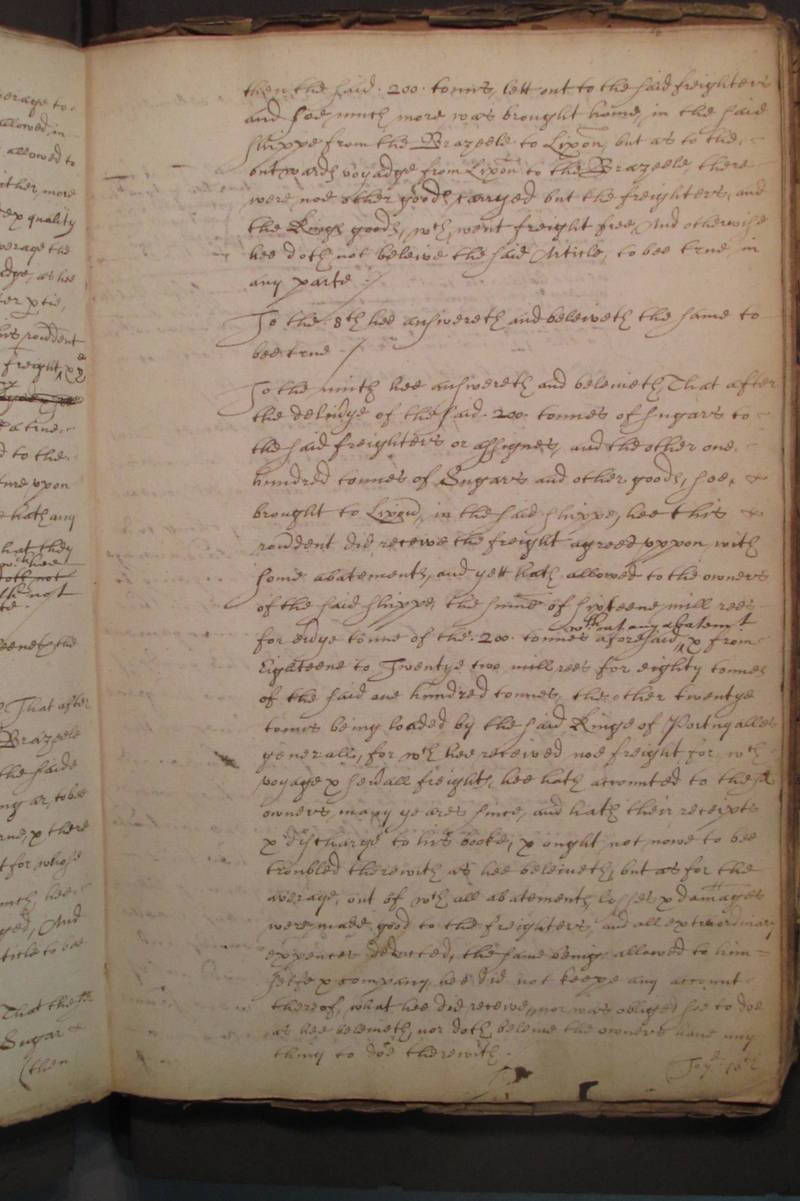 then the said .200. tonns, lett out to the said freighters
and soe much more was brought home, in the said
shippe from the Brazeele to Lixon, but as to the
outwards voyadge from Lixon to the Brazeele, there
were noe other goods carryed but the freighters, and
the Kings goods, wch went freight free, And otherwise
hee doth not beleive the said Article, to bee true in
any parte ./
To the .8th hee answereth and beleiveth the same to
bee true ./
To the ninth hee answereth and beleiveth That after
the delivye of the said .200. tonnes of sugars to
the said freighters or assignes, and the other one
hundred tonnes of Sugars and other goods, soe
brought to Lixon, in the said shippe, hee this
rondent did receive the freight agreed uppon, with
some abatements, and yett hath allowed to the owners
of the said shippe, the sume of sixteene mill rees
without any abatemt
for evye tonne of the .200. tonnes aforesaid, & from
Eighteene to Twentye two mill rees for eighty tonnes
of the said one hundred tonnes, the other twentye
tonns being loaded by the said Kinge of Portugalles
generalls, for wch hee received noe freight, for wch
voyage & sevall freights, hee hath accounted to the sd
owners many yeares since, and hath their receipts
& discharge to his booke, & ought not nowe to bee
troubled therewith as hee beleiveth, but as for the
average, out of wch all abatements losses & damages
were made good to the freighters, and all extraordinary
expences deducted, the same being allowed to him
selfe & company, hee did not keepe any account
thereof, what hee did receive, nor was obliged soe to doe
as hee beleiveth, nor doth beleive the owners have any
thing to doe therewith.
To ye 10th
erage to
allowed in
allowed to
other, more
& quality
verage the
adge, as hee
his rondent
freight, &
d to the
ture upon
hath any
that they
doth not
That after
Brazeele
the saide
ng ar, to bee
rue, & there
t for, whose
much hee
yed, And
ticle to bee
That the sd
Sugar
(then